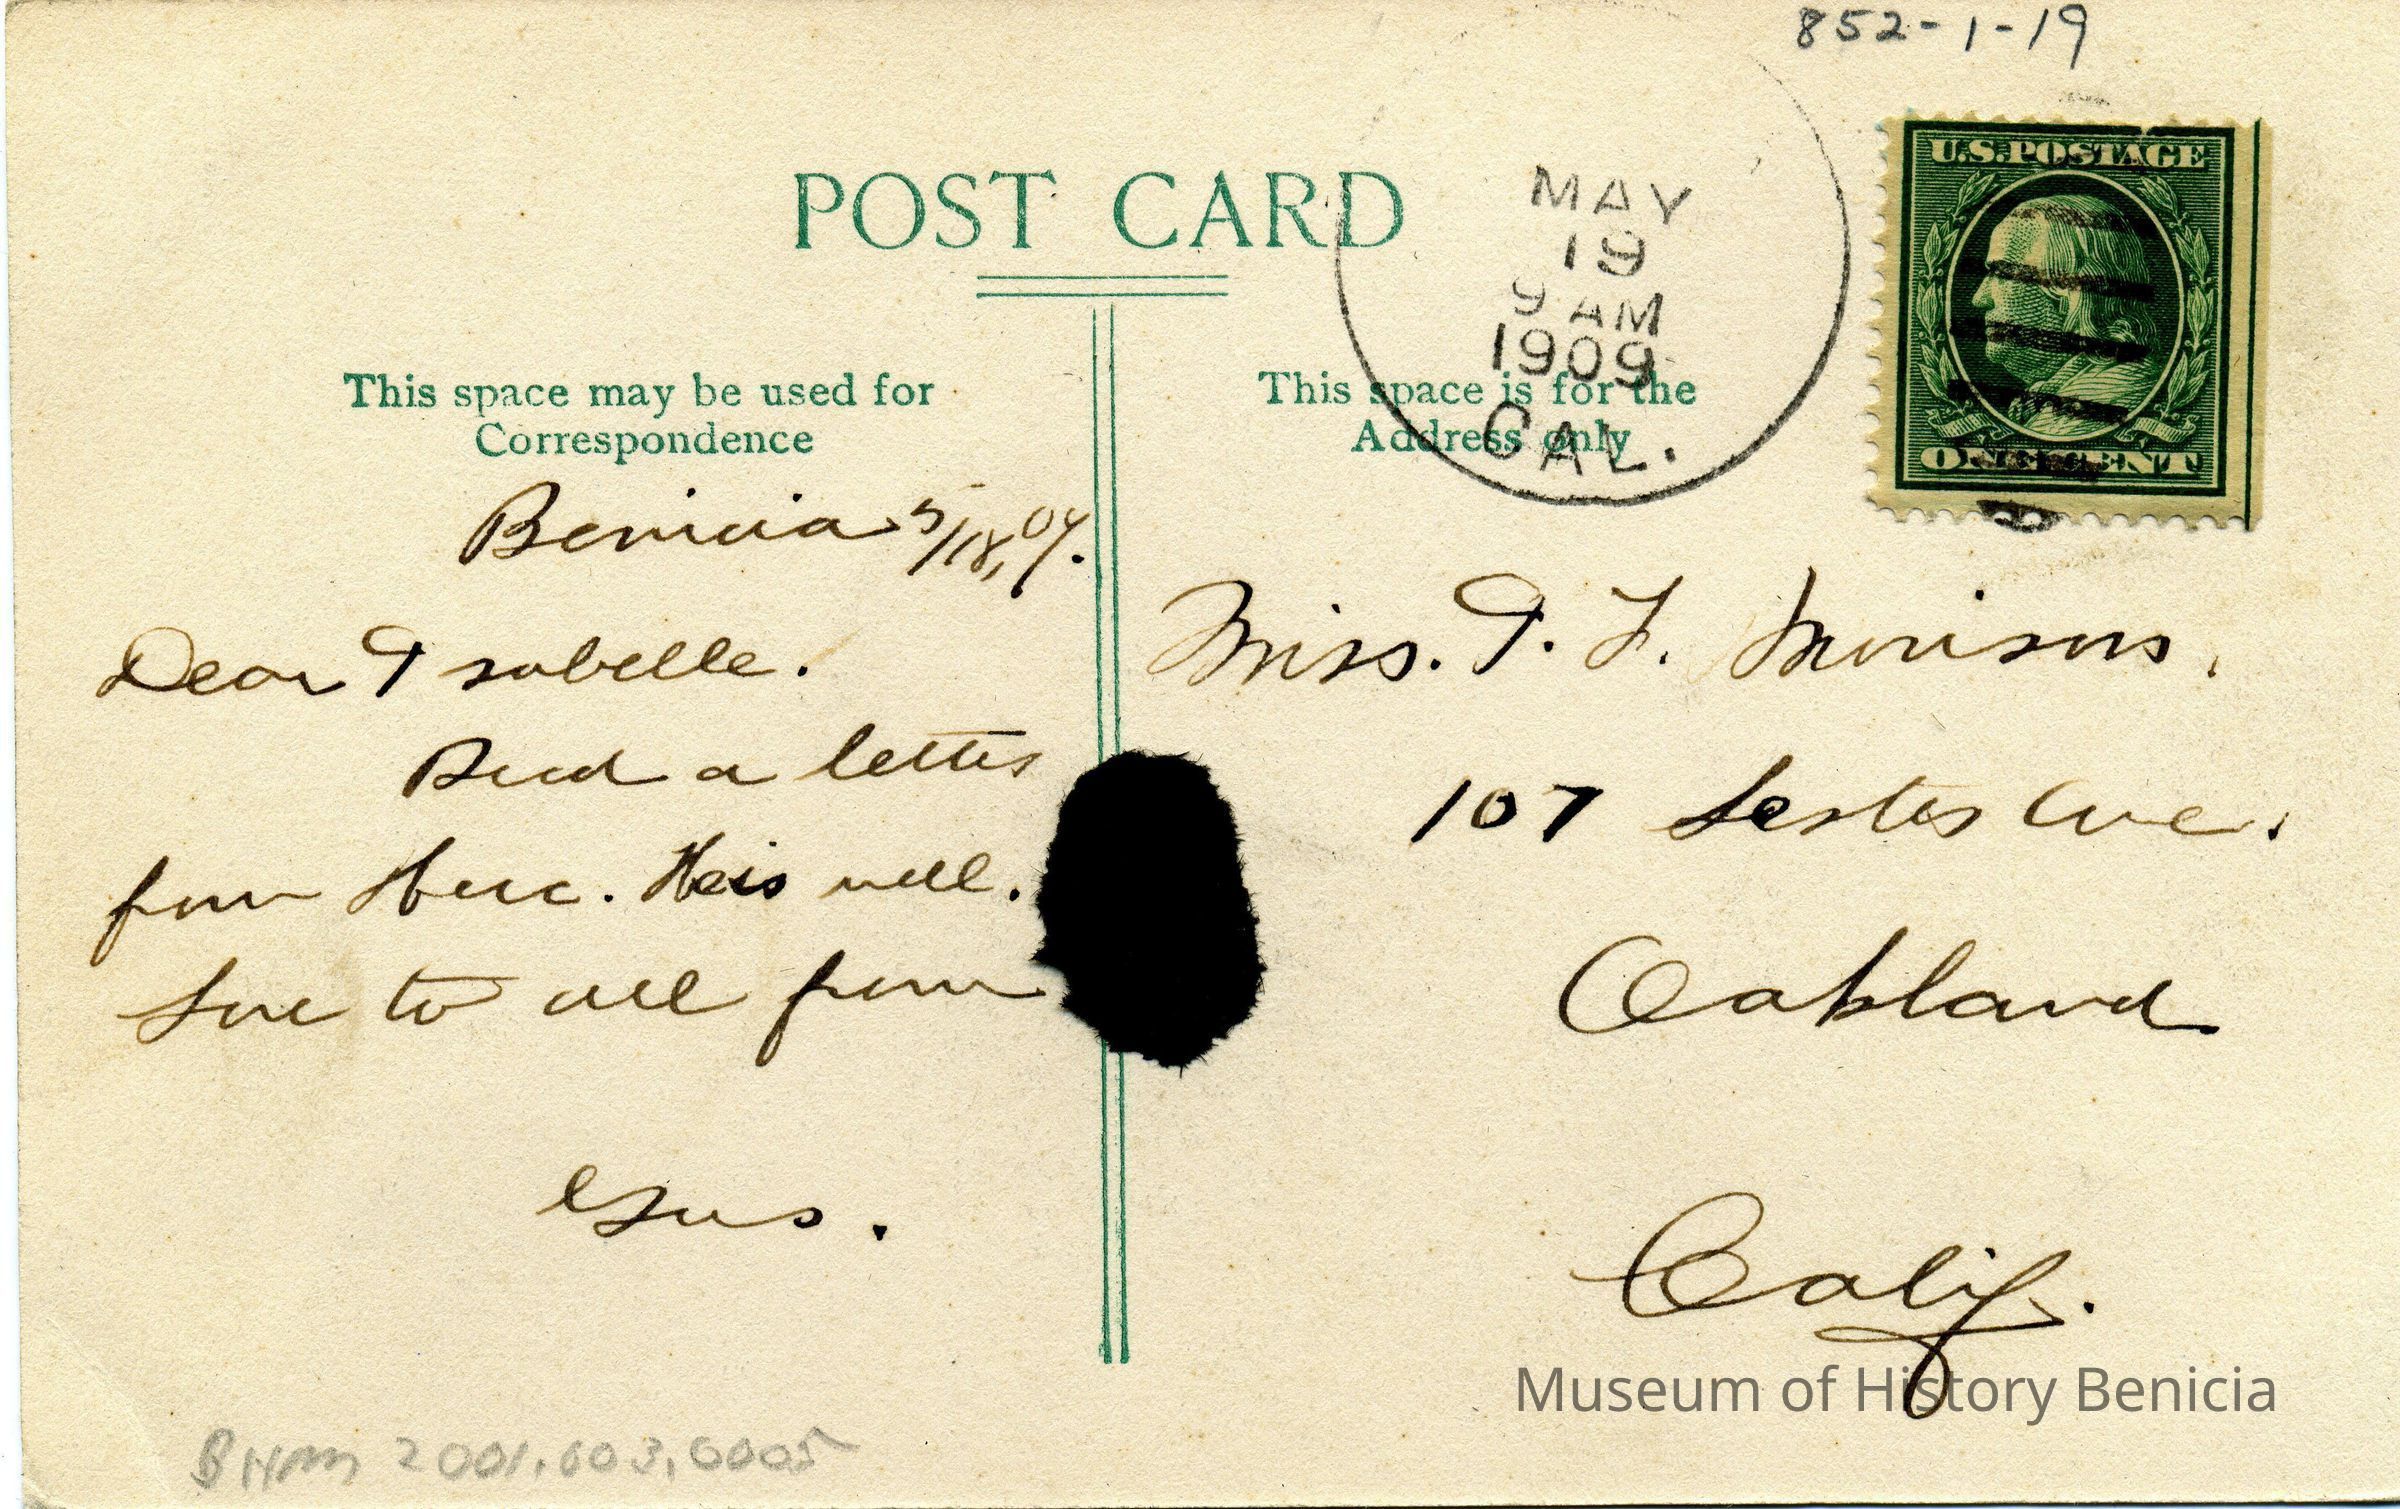 852-1-19
U.S. POSTAGE
ONE CENT
MAY
19
9 AM
1909
CAL.
POST CARD
This space may be used for
Correspondence
This space is for the
Address only
Benicia 5/18, 09.
Dear Isabelle.
a letter
from Herc. He is well.
Love to all from
Gus.
Miss. I. F.
107 Lester Ave.
Oakland
Calif.
Museum of History Benicia
BHM 2001.003.0005